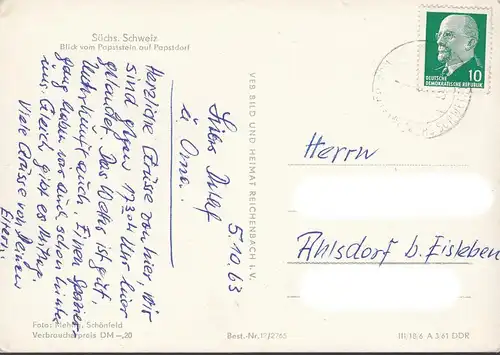 Sächs. Schweiz
Blick vom Papststein auf Papstdorf
5.10.63
Lieber Detlef
u. Oma.
Herzliche Grüsse von hier, wir
sind gegen 17 30h Uhr hier
gelandet. Das Wetter ist gut,
Unterkunft auch. Einen Spazier
gang haben wir auch schon hinter
uns. Gleich gibt es Mittag.
Viele Grüsse von Deinen
Eltern.
Foto: Schönfeld
Verbraucherpreis DM –,20
VEB BILD UND HEIMAT REICHENBACH i. V.
Best.-Nr. 17/2765
DEUTSCHE
DEMOKRATISCHE REPUBLIK
10
Herrn
Ahlsdorf b. Eisleben
III/18/6 A 3/61 DDR